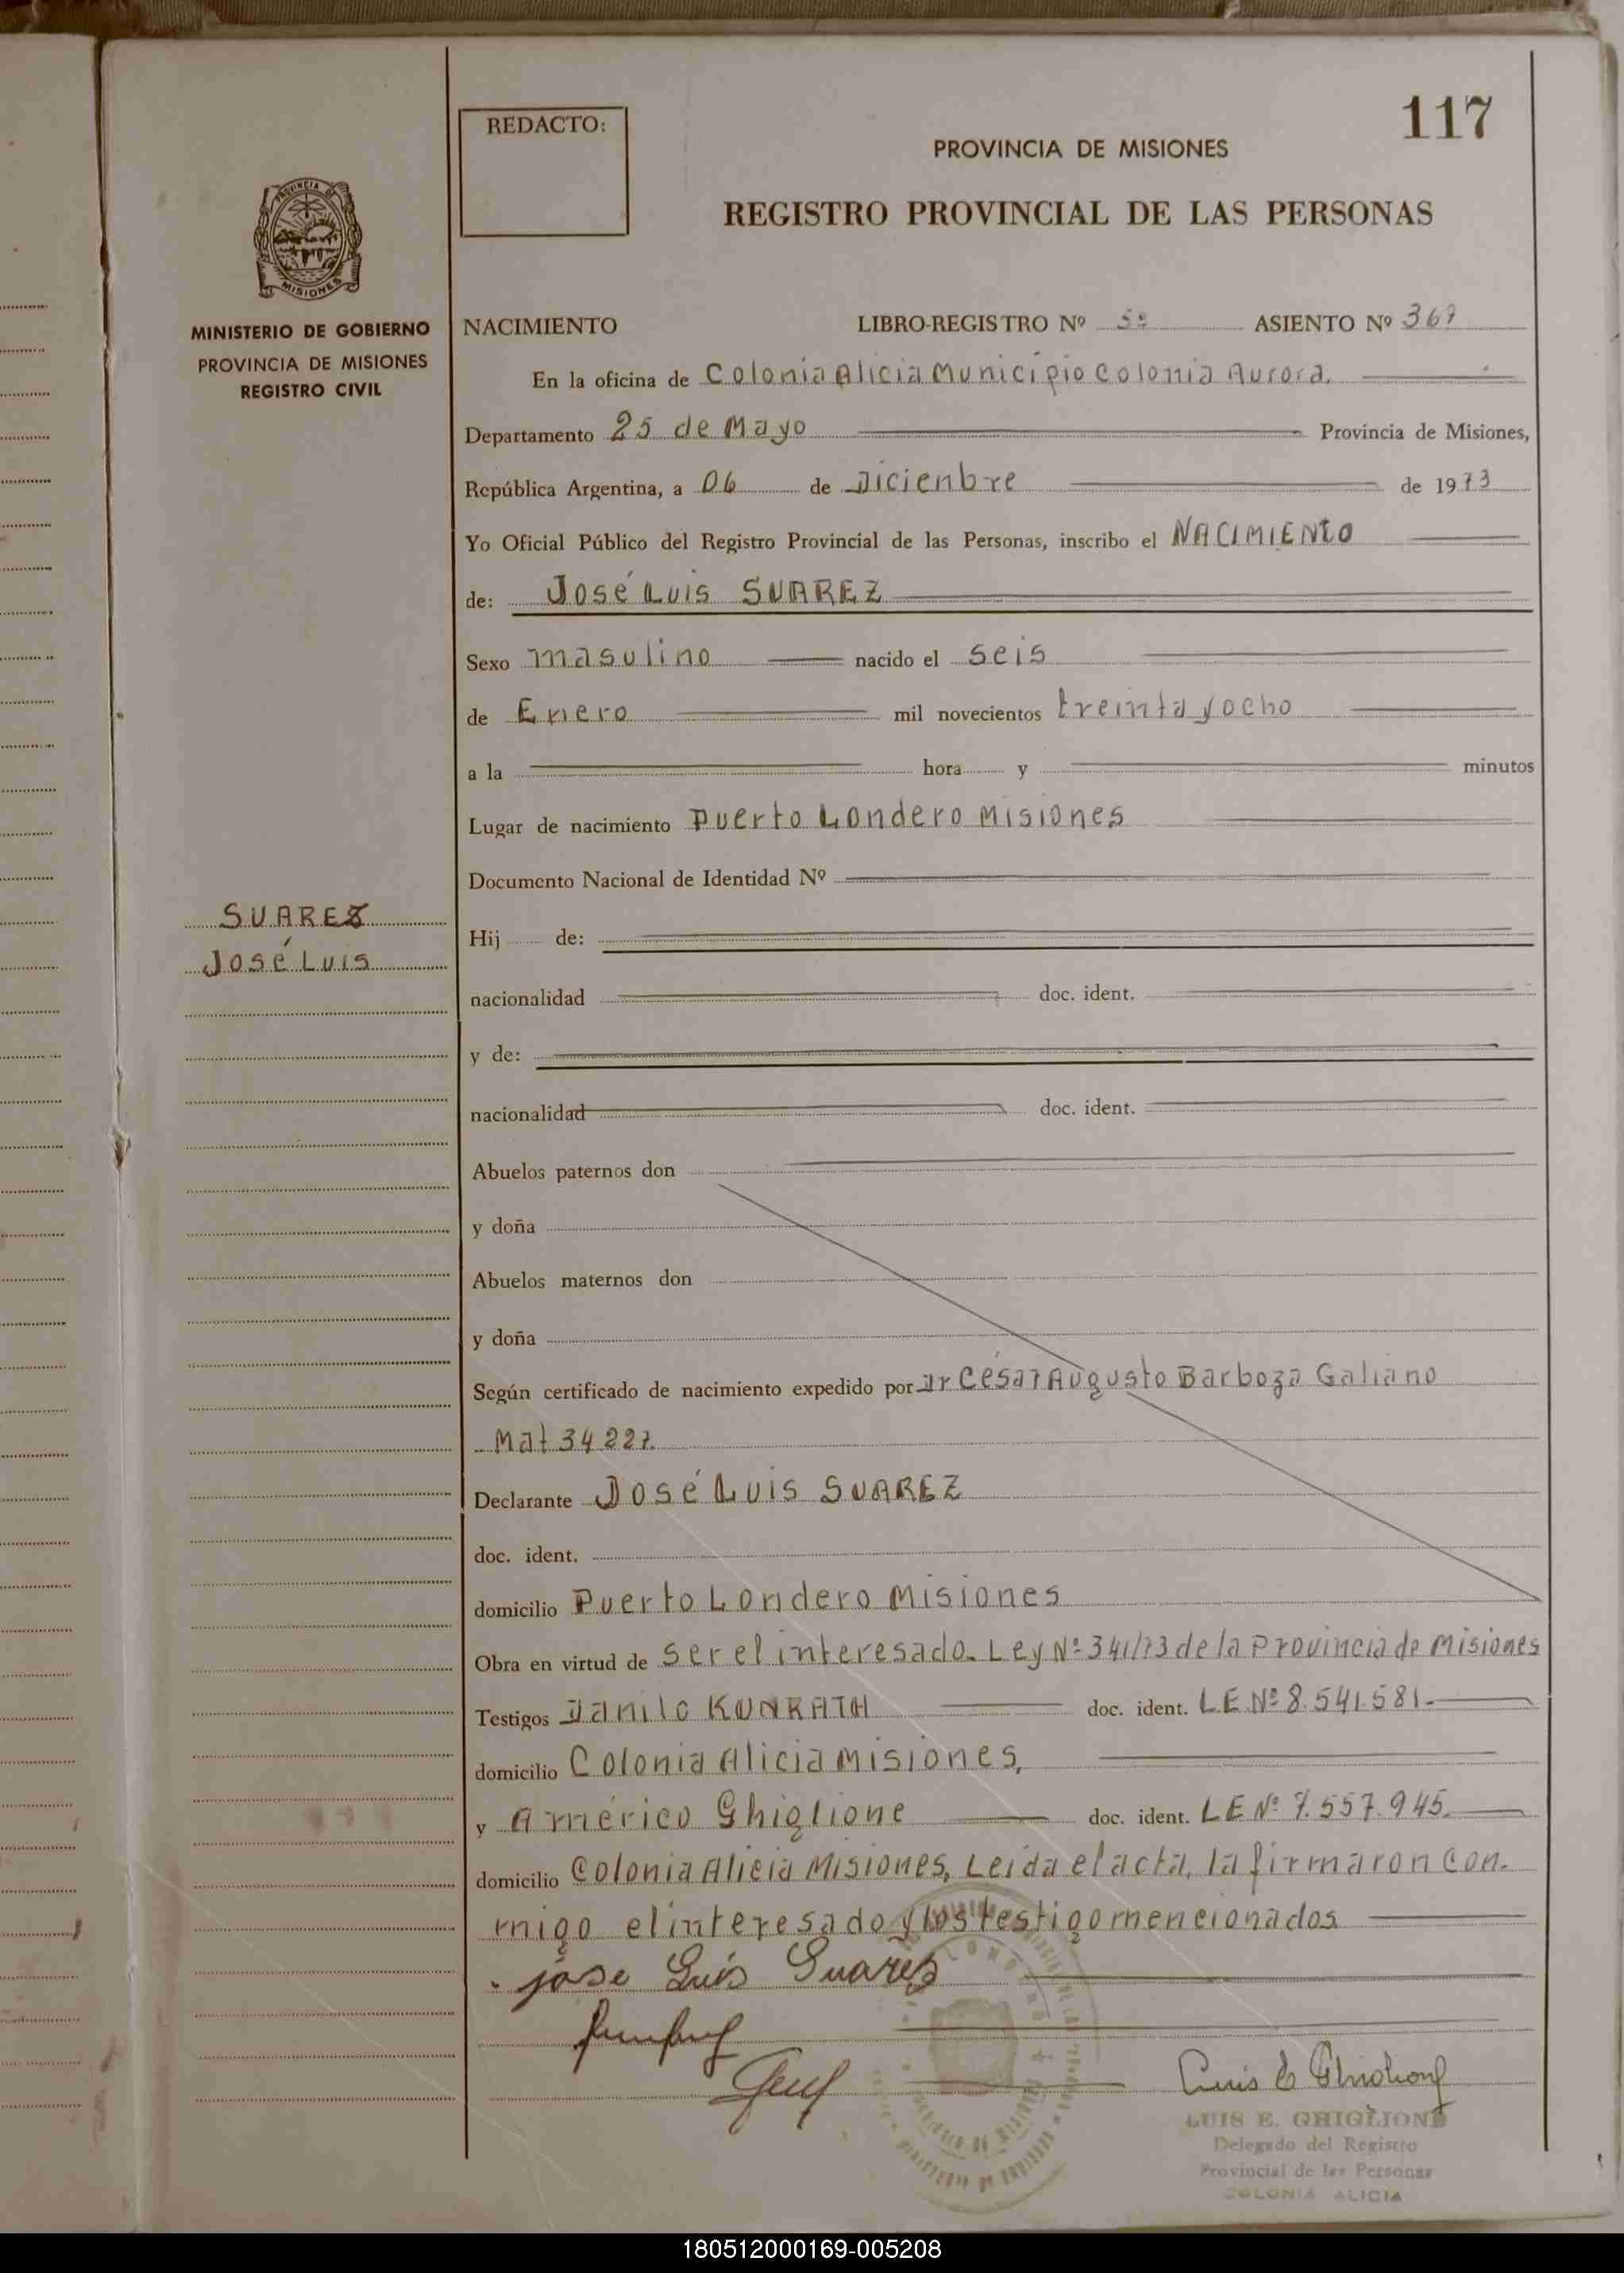 117
REDACTO:
PROVINCIA DE MISIONES
REGISTRO PROVINCIAL DE LAS PERSONAS
PROVINCIA DE
MISIONES
MINISTERIO DE GOBIERNO
PROVINCIA DE MISIONES
REGISTRO CIVIL
NACIMIENTO LIBRO-REGISTRO Nº 5º ASIENTO Nº 367
En la oficina de Colonia Alicia Municipio Colonia Aurora.
Departamento 25 de Mayo Provincia de Misiones,
República Argentina, a 06 de Dicienbre de 1973
Yo Oficial Público del Registro Provincial de las Personas, inscribo el NACIMIENTO
de: José Luis SUAREZ
Sexo masulino nacido el seis
de Enero mil novecientos treinta y ocho
a la hora y minutos
Lugar de nacimiento Puerto Londero Misiones
Documento Nacional de Identidad Nº
SUAREZ
José Luis
Hij de:
nacionalidad doc. ident.
y de:
nacionalidad doc. ident.
Abuelos paternos don
y doña
Abuelos maternos don
y doña
Según certificado de nacimiento expedido por Dr César Augusto Barboza Galiano
Mat 34227.
Declarante José Luis SUAREZ
doc. ident.
domicilio Puerto Londero Misiones
Obra en virtud de ser el interesado. Ley Nº 341/73 de la Provincia de Misiones
Testigos Danilo KUNRATH doc. ident. L.E.Nº 8.541.581.-
domicilio Colonia Alicia Misiones,
y Américo Ghiglione doc. ident. L E Nº 7.557.945.
domicilio Colonia Alicia Misiones, Leída el acta, la firmaron con-
migo el interesado y los testigo mencionados
jose Luis Suares
LUIS E. GHIGLIONE
Delegado del Registro
Provincial de las Personas
COLONIA ALICIA
180512000169-005208